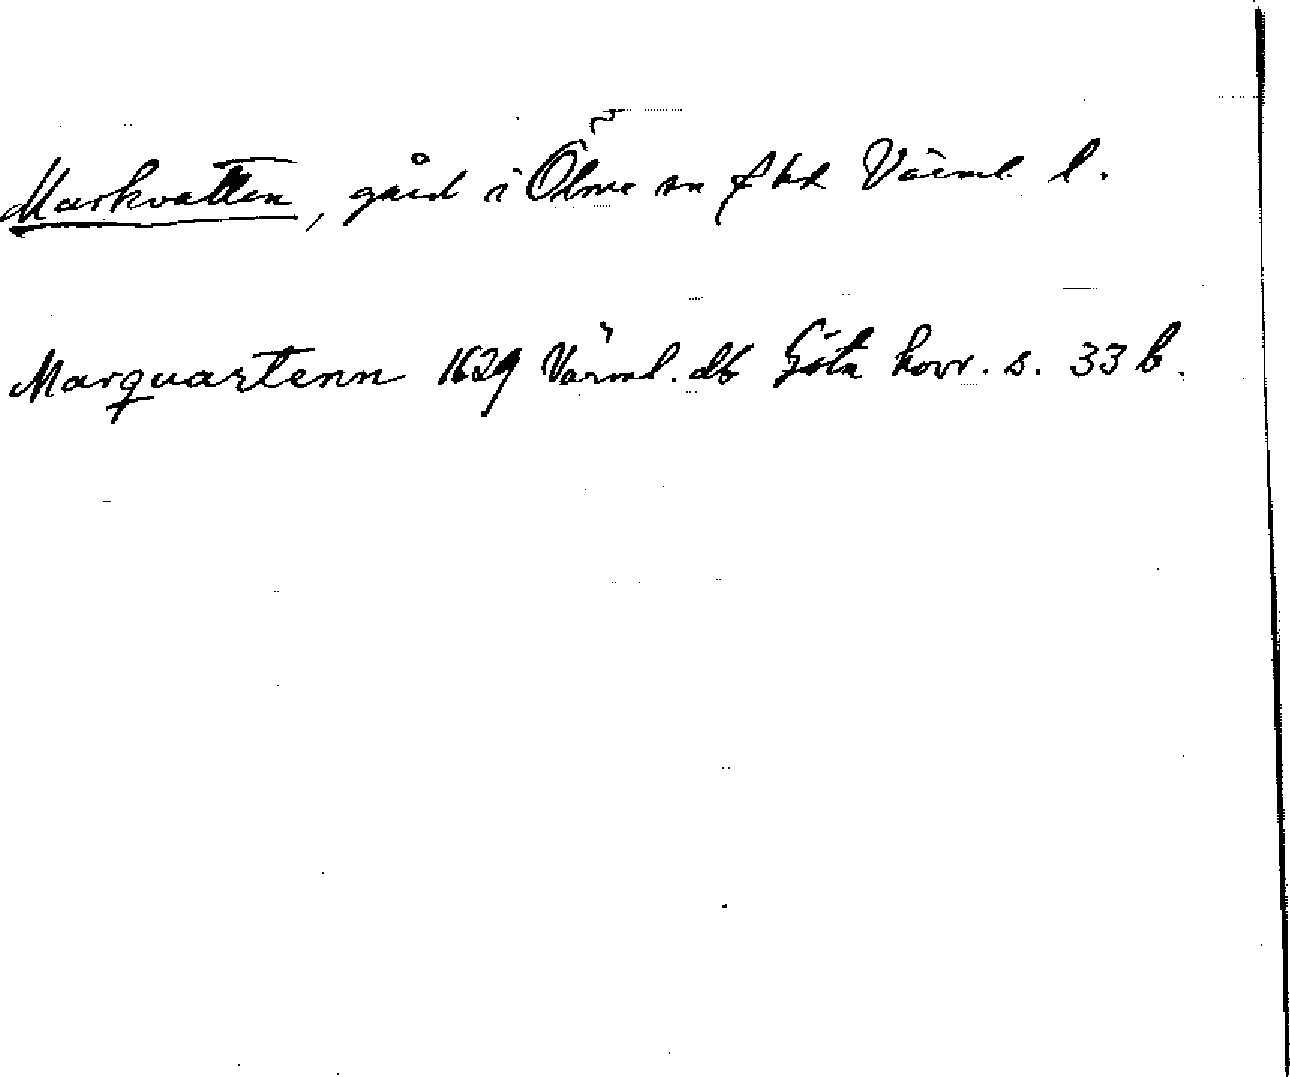 Markvatten, gård i Ölme sn f hd Värml. l.
Marquartenn 1629 Värml. db Göta hovr. s. 33 b.